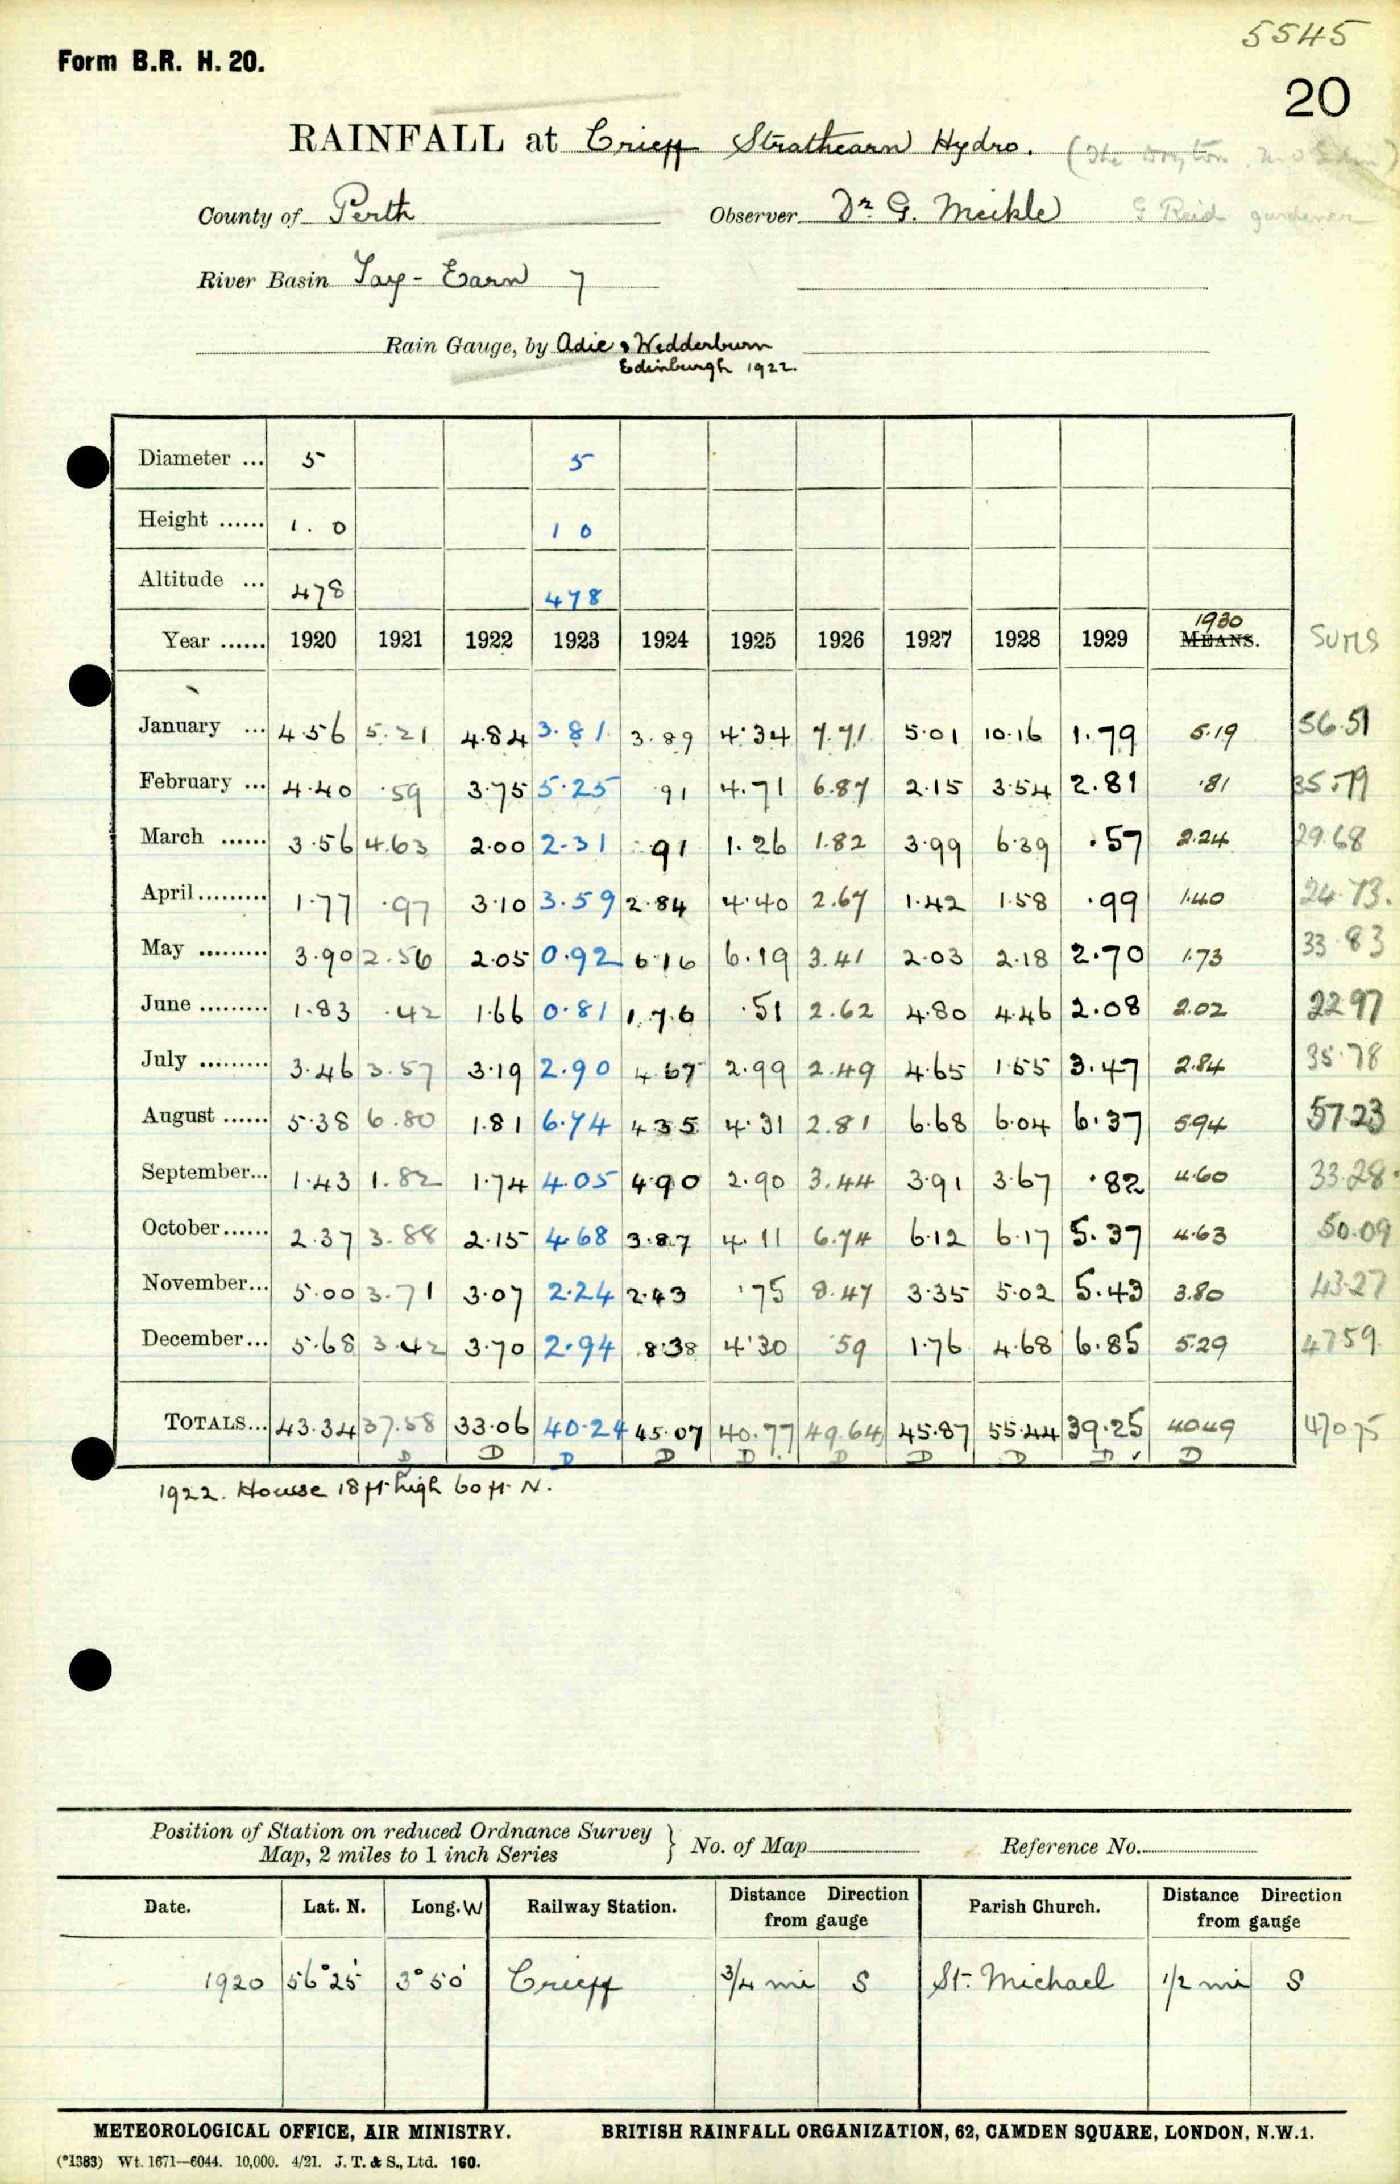 5545
Form B.R. H. 20.
20
RAINFALL at Crieff Strathearn Hydro. (The
County of Perth Observer Dr. G. Meikle G Reid gardener
River Basin Tay - Earn 7
Rain Gauge, by Adie & Wedderburn
Edinburgh 1922.
Diameter ... 5 5
Height ...... 1. 0 1 0
Altitude ... 478 478
1930
Year ...... 1920 1921 1922 1923 1924 1925 1926 1927 1928 1929 MEANS. SUMS
January ... 4.56 5.21 4.84 3.81 3.89 4.34 7.71 5.01 10.16 1.79 5.19 56.51
February ... 4.40 .59 3.75 5.25 .91 4.71 6.87 2.15 3.54 2.81 .81 35.79
March ...... 3.56 4.63 2.00 2.31 .91 1.26 1.82 3.99 6.39 .57 2.24 29.68
April ......... 1.77 .97 3.10 3.59 2.84 4.40 2.67 1.42 1.58 .99 1.40 24.73.
May ......... 3.90 2.56 2.05 0.92 6.16 6.19 3.41 2.03 2.18 2.70 1.73 33.83
June ......... 1.83 .42 1.66 0.81 1.76 .51 2.62 4.80 4.46 2.08 2.02 22.97
July ......... 3.46 3.57 3.19 2.90 4.67 2.99 2.49 4.65 1.55 3.47 2.84 35.78
August ...... 5.38 6.80 1.81 6.74 4.35 4.31 2.81 6.68 6.04 6.37 5.94 57.23
September... 1.43 1.82 1.74 4.05 4.90 2.90 3.44 3.91 3.67 .82 4.60 33.28.
October...... 2.37 3.88 2.15 4.68 3.87 4.11 6.74 6.12 6.17 5.37 4.63 50.09
November... 5.00 3.71 3.07 2.24 2.43 .75 8.47 3.35 5.02 5.43 3.80 43.27
December... 5.68 3.42 3.70 2.94 8.38 4.30 .59 1.76 4.68 6.85 5.29 47.59
TOTALS... 43.34 37.58 33.06 40.24 45.07 40.77 49.64 45.87 55.44 39.25 40.49 470.75
D D D D D D D D D D
1922. House 18 ft. high 60 ft. N.
Position of Station on reduced Ordnance Survey
Map, 2 miles to 1 inch Series } No. of Map Reference No.
Date. Lat. N. Long. W Railway Station. Distance Direction from gauge Parish Church. Distance Direction from gauge
1920 56°25' 3°50' Crieff 3/4 mi S St. Michael 1/2 mi S
METEOROLOGICAL OFFICE, AIR MINISTRY. BRITISH RAINFALL ORGANIZATION, 62, CAMDEN SQUARE, LONDON, N.W.1.
(*1383) Wt. 1671—6044. 10,000. 4/21. J. T. & S., Ltd. 160.